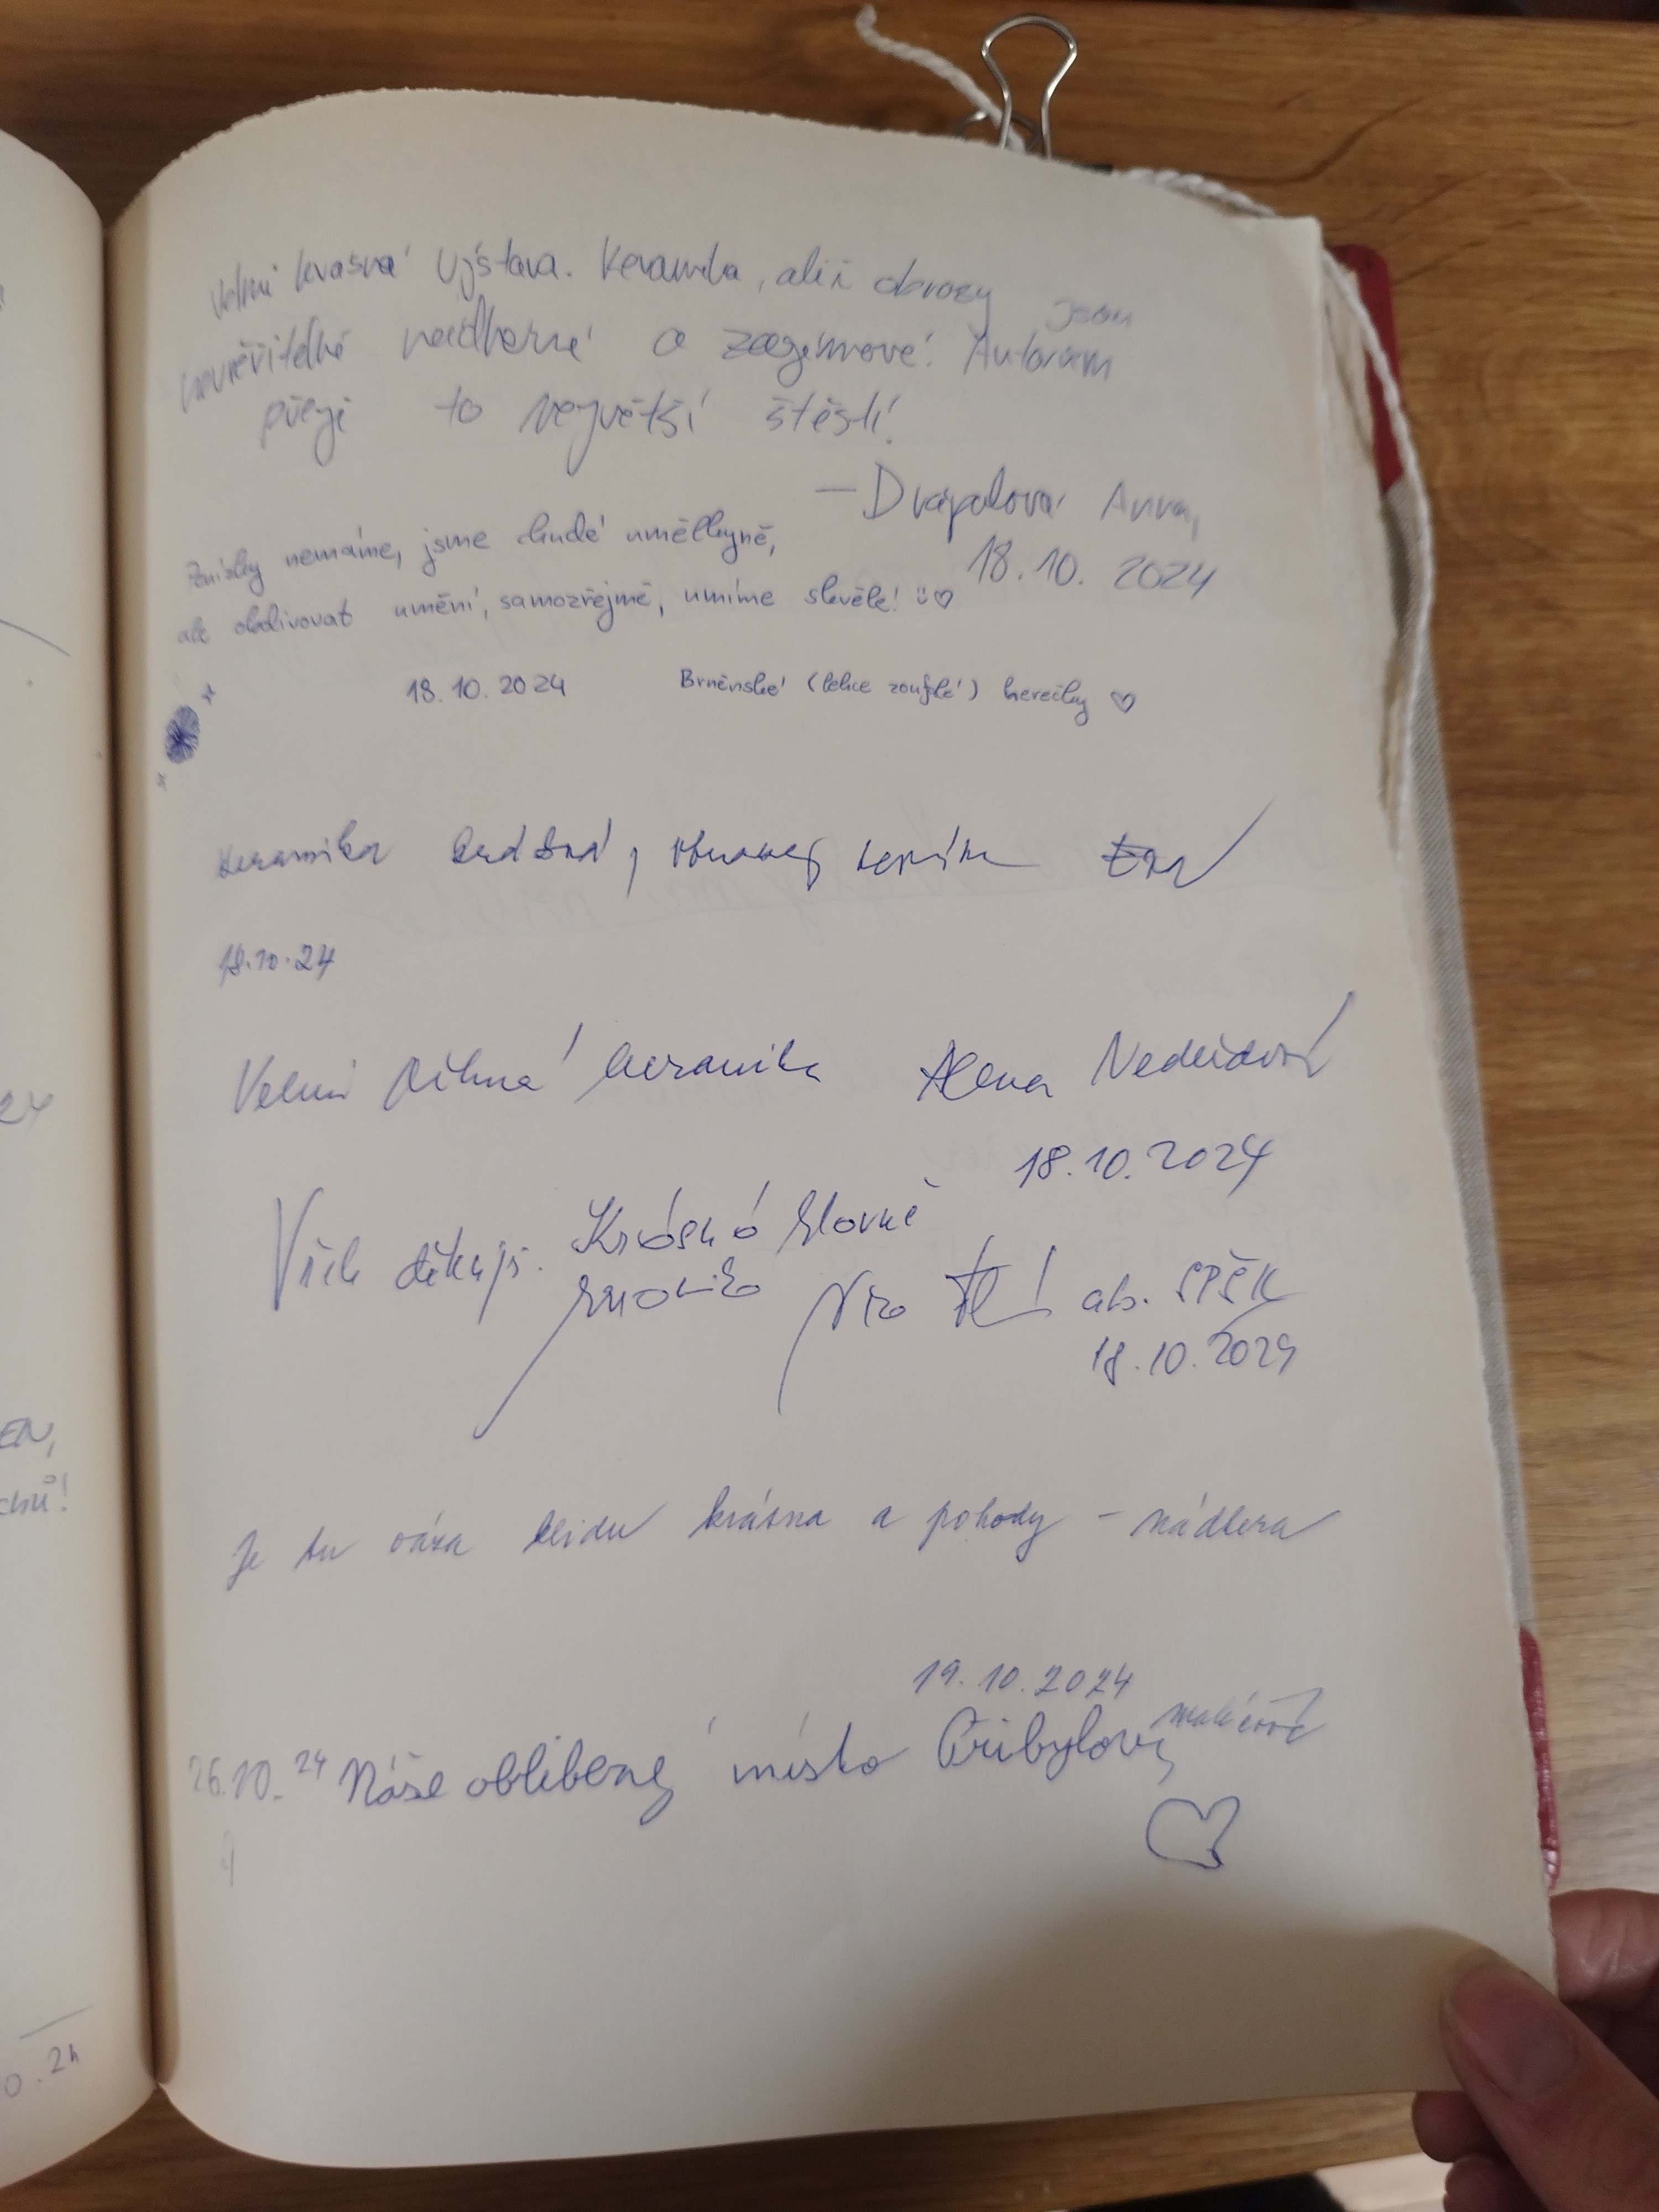 Velmi krásná výstava. Keramika, ale i obrazy jsou
neuvěřitelně nádherné a zajímavé! Autorům
přeji to největší štěstí!
— Drápalová Anna,
18.10. 2024
Penízky nemáme, jsme chudé umělkyně,
ale obdivovat umění, samozřejmě, umíme skvěle! ♡
18.10.2024 Brněnské (lehce zoufalé) herečky ♡
Keramika krásná, obrazy
18.10.24
Velmi pěkná keramika Alena
18.10.2024
Všem děkuji. Krásná hlavně
ab. SPŠK
18.10.2024
Je tu oáza klidu krásna a pohody - nádhera
19.10.2024
26.10.24 Náše oblíbený místo Přibylovi,
♡
EN,
chů!
24
0.24